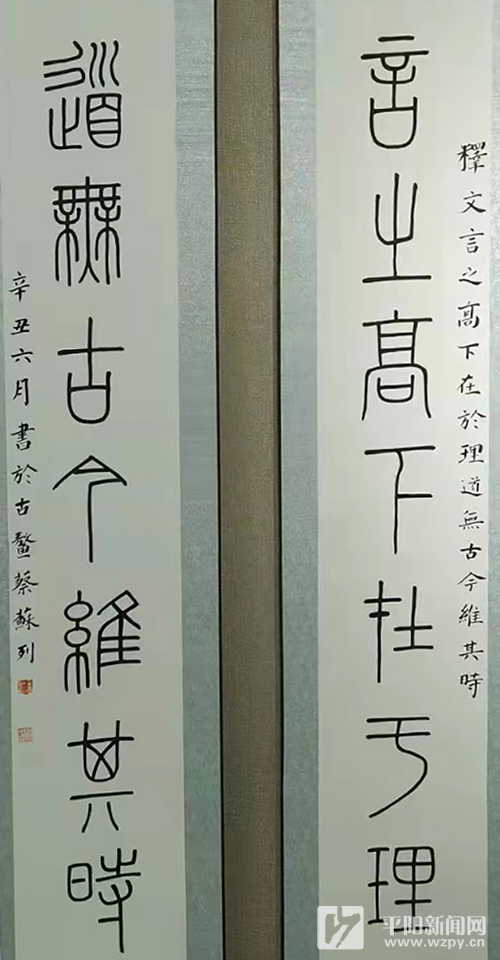 釋文言之高下在於理道無古今維其時
言之高下在于理
道無古今維其時
辛丑六月書於古鰲蔡蘇列
平阳新闻网
www.wzpy.cn